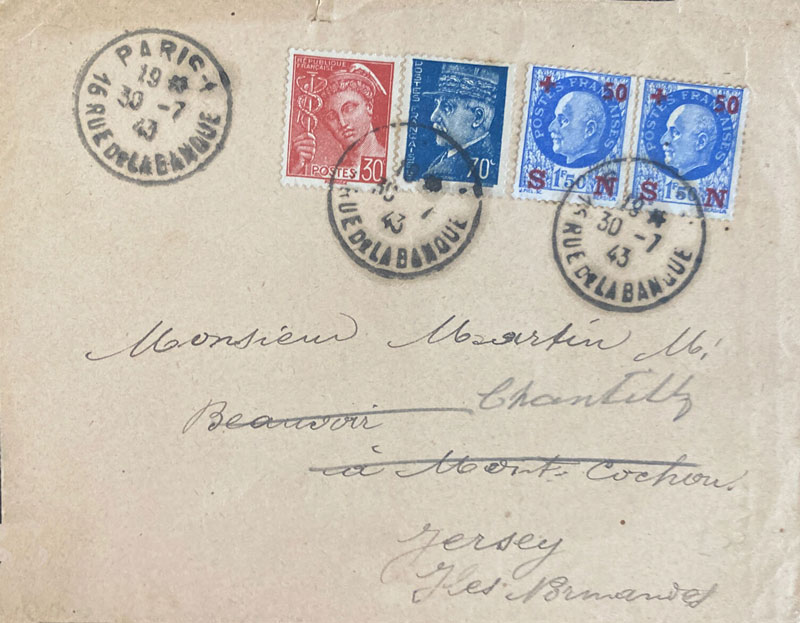 PARIS-1
19 *
30 -7
43
16 RUE De LA BANQUE
RÉPUBLIQUE FRANÇAISE
POSTES 30c
POSTES FRANÇAISES
70c
+ 50
POSTES FRANÇAISES
1F50
S N
+ 50
POSTES FRANÇAISES
1F50
S N
30 -7
43
16 RUE De LA BANQUE
19 *
30 -7
43
16 RUE De LA BANQUE
Monsieur Martin M.
Beauvoir Chantilly
à Mont-Cochon.
Jersey
Iles Normandes